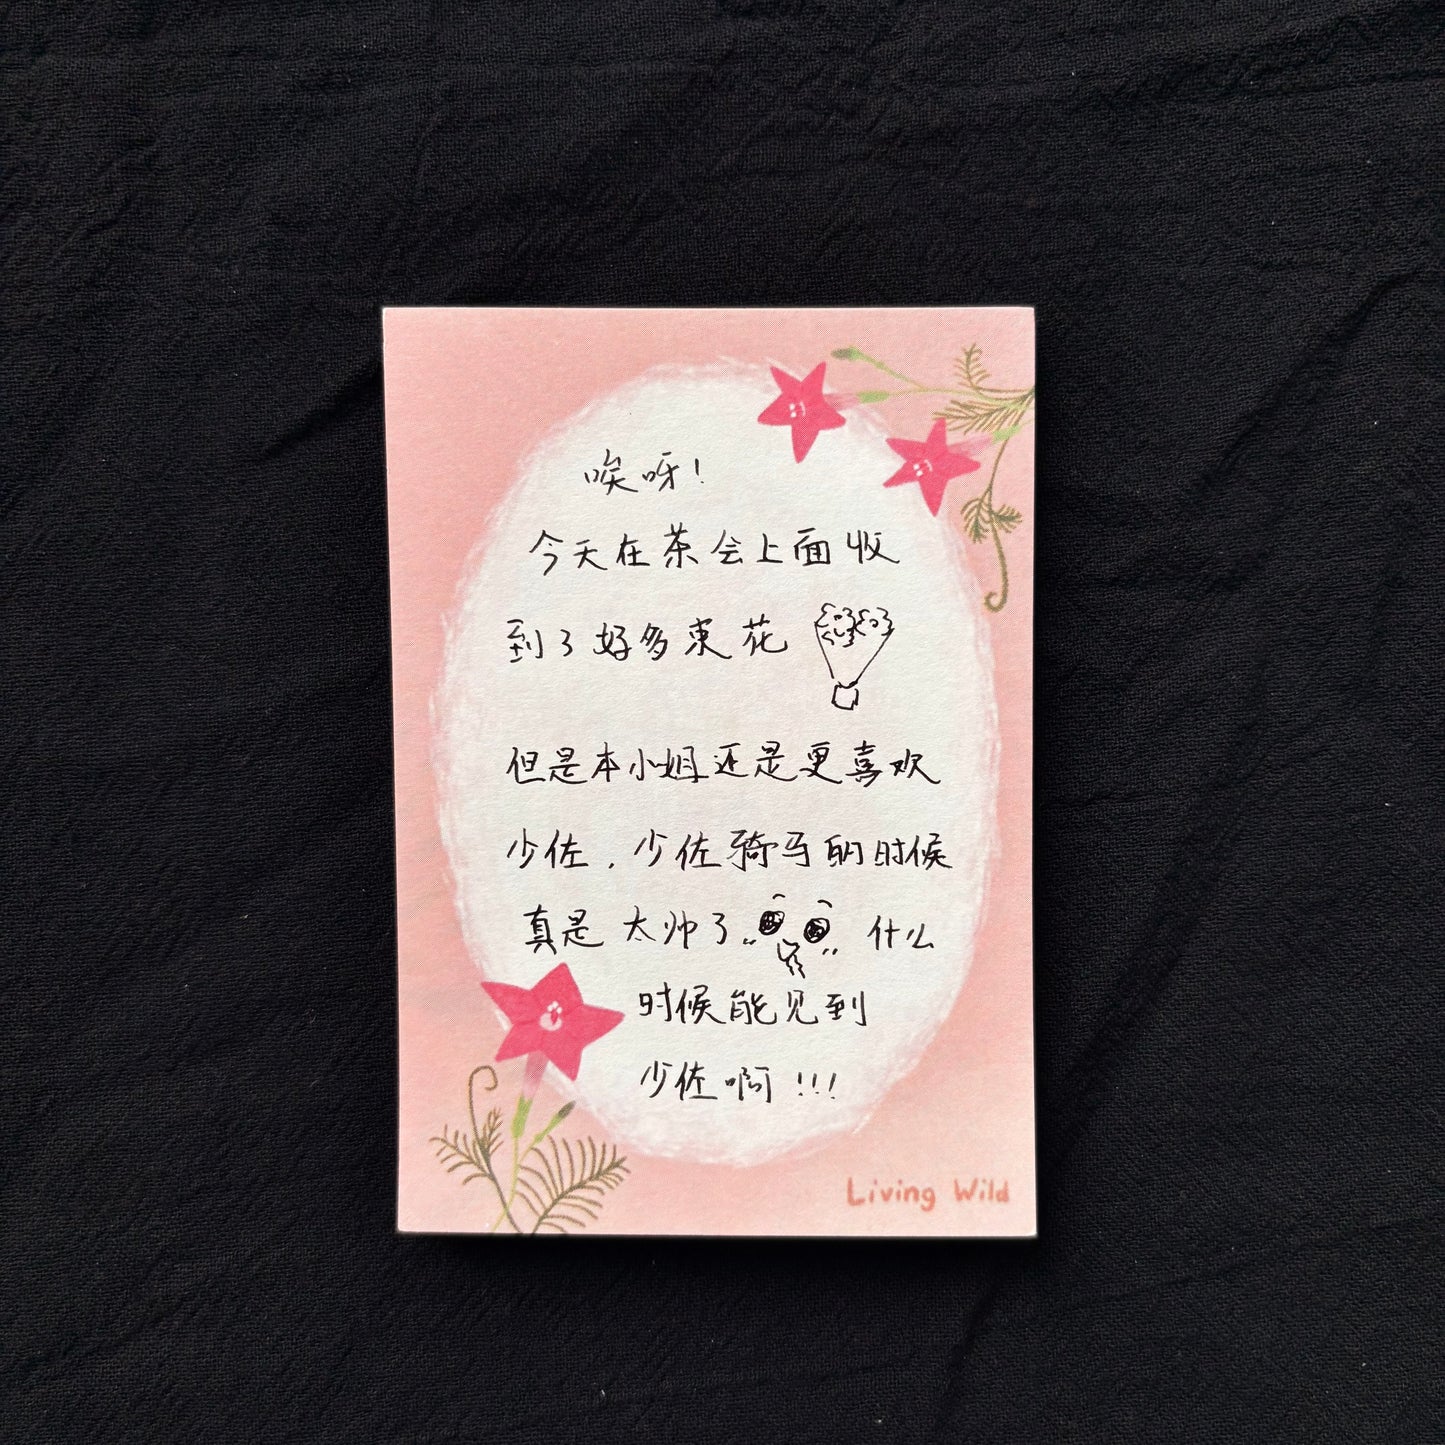 唉呀!
今天在茶会上面收
到了好多束花
但是本小姐还是更喜欢
少佐.少佐骑马的时候
真是太帅了 什么
时候能见到
少佐啊!!!
Living Wild